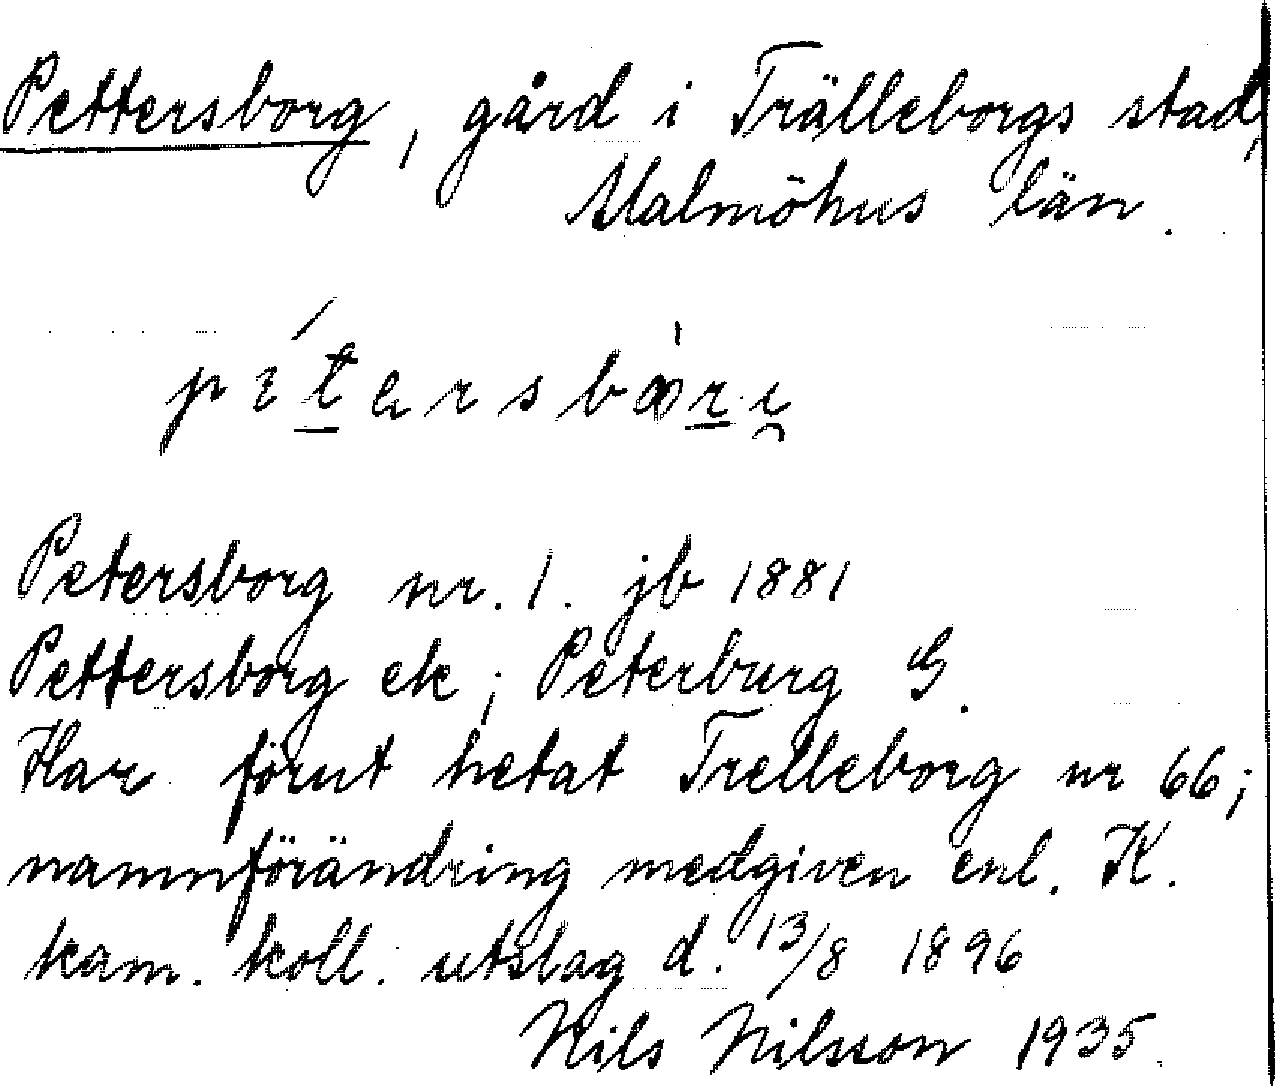 Pettersborg, gård i Trälleborgs stad,
Malmöhus län.
Petersborg nr. 1. jb 1881
Pettersborg ek; Peterburg G.
Har förut hetat Trelleborg nr 66;
namnförändring medgiven enl. K.
kam. koll. utslag d. 13/8 1896
Nils Nilsson 1935.